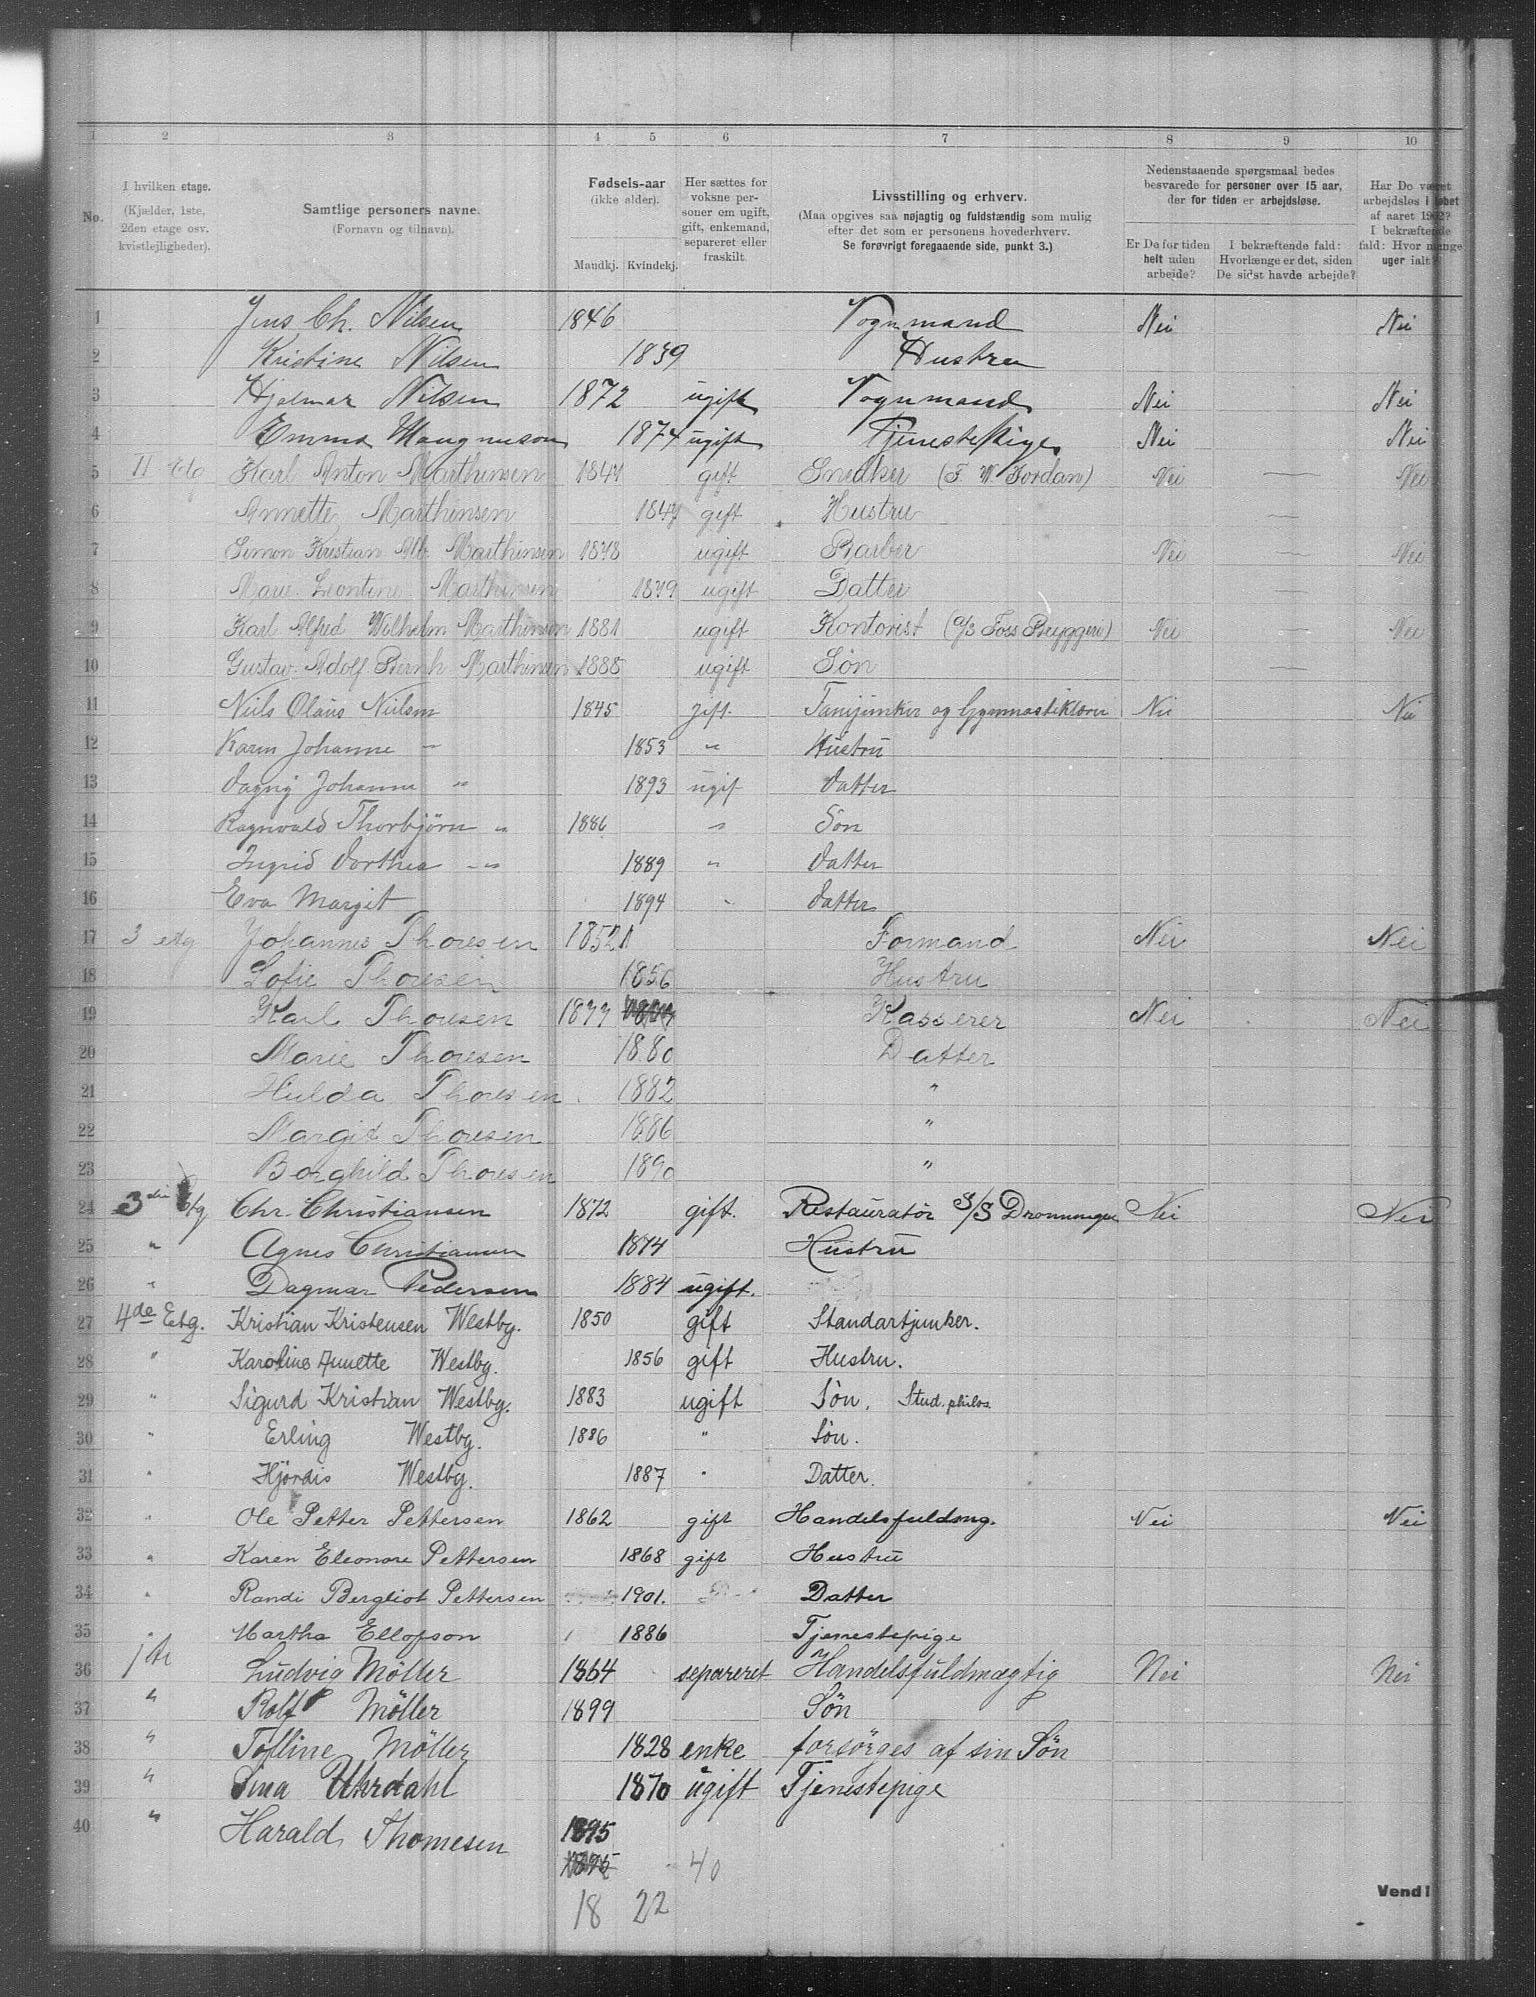 1 2 3 4 5 6 7 8 9 10
No. | I hvilken etage. (Kjælder, 1ste, 2den etage osv. kvistlejligheder). | Samtlige personers navne. (Fornavn og tilnavn). | Fødsels-aar (ikke alder). Mandkj. Kvindekj. | Her sættes for voksne personer om ugift, gift, enkemand, separeret eller fraskilt. | Livsstilling og erhverv. (Maa opgives saa nøjagtig og fuldstændig som mulig efter det som er personens hovederhverv. Se forøvrigt foregaaende side, punkt 3.) | Nedenstaaende spørgsmaal bedes besvarede for personer over 15 aar, der for tiden er arbejdsløse. Er De for tiden helt uden arbejde? | I bekræftende fald: Hvorlænge er det, siden De sidst havde arbejde? | Har De været arbejdsløs i løbet af aaret 1902? I bekræftende fald: Hvor mange uger ialt?
1 Jens Ch. Nilsen 1846 Vognmand Nei Nei
2 Kristine Nilsen 1839 Hustru
3 Hjalmar Nilsen 1872 ugift Vognmand Nei Nei
4 Emma Maugnuson 1874 ugift Tjenestepige Nei Nei
5 II etg Karl Anton Marthinsen 1847 gift Snedker (F. W. Jordan) Nei — Nei
6 Annette Marthinsen 1847 gift Hustru —
7 Simon Kristian Alb. Marthinsen 1878 ugift Barber Nei — Nei
8 Marie Leontine Marthinsen 1879 ugift Datter —
9 Karl Alfred Wilhelm Marthinsen 1881 ugift Kontorist (A/S Foss Bryggeri) Nei — Nei
10 Gustav Adolf Bernh Marthinsen 1888 ugift Søn —
11 Niels Olaus Nielsen 1845 gift. Fanejunker og Gymnastiklærer Nei Nei
12 Karen Johanne " 1853 " Hustru
13 Dagny Johanne " 1893 ugif Datter
14 Ragnvald Thorbjörn " 1886 " Sön
15 Ingrid Dorthea " 1889 " Datter
16 Eva Margit 1894 " Datter
17 3 etg Johannes Thoresen 1852 Formand Nei Nei
18 Sofie Thoresen 1856 Hustru
19 Karl Thoresen 1877 Kasserer Nei Nei
20 Marie Thoresen 1880 Datter
21 Hulda Thoresen 1882 "
22 Margit Thoresen 1886 "
23 Borghild Thoresen 1890 "
24 3die Etg Chr. Christiansen 1872 gift. Restauratør S/S Dronningen Nei Nei
25 " Agnes Christiansen 1874 Hustru
26 " Dagmar Pedersen 1884 ugift.
27 4de Etg. Kristian Kristensen Westby. 1850 gift Standartjunker.
28 " Karoline Annette Westby. 1856 gift Hustru.
29 " Sigurd Kristian Westby. 1883 ugift Søn, Stud. philos.
30 " Erling Westby. 1886 " Søn.
31 " Hjördis Westby. 1887 " Datter.
32 " Ole Petter Pettersen 1862 gift Handelsfuldmg. Nei Nei
33 " Karen Eleonore Pettersen 1868 gift Hustru
34 " Randi Bergliot Pettersen 1901. Datter
35 " Martha Ellofson 1886 Tjenestepige
36 1ste Ludvig Möller 1864 separeret Handelsfuldmægtig Nei Nei
37 " Rolf Möller 1899 Sön
38 " Tolline Möller 1828 enke forsörges af sin Sön
39 " Sina Uhrdahl 1870 ugift Tjenestepige
40 " Harald Thomesen 1895
1895 40
Vend!
18 22